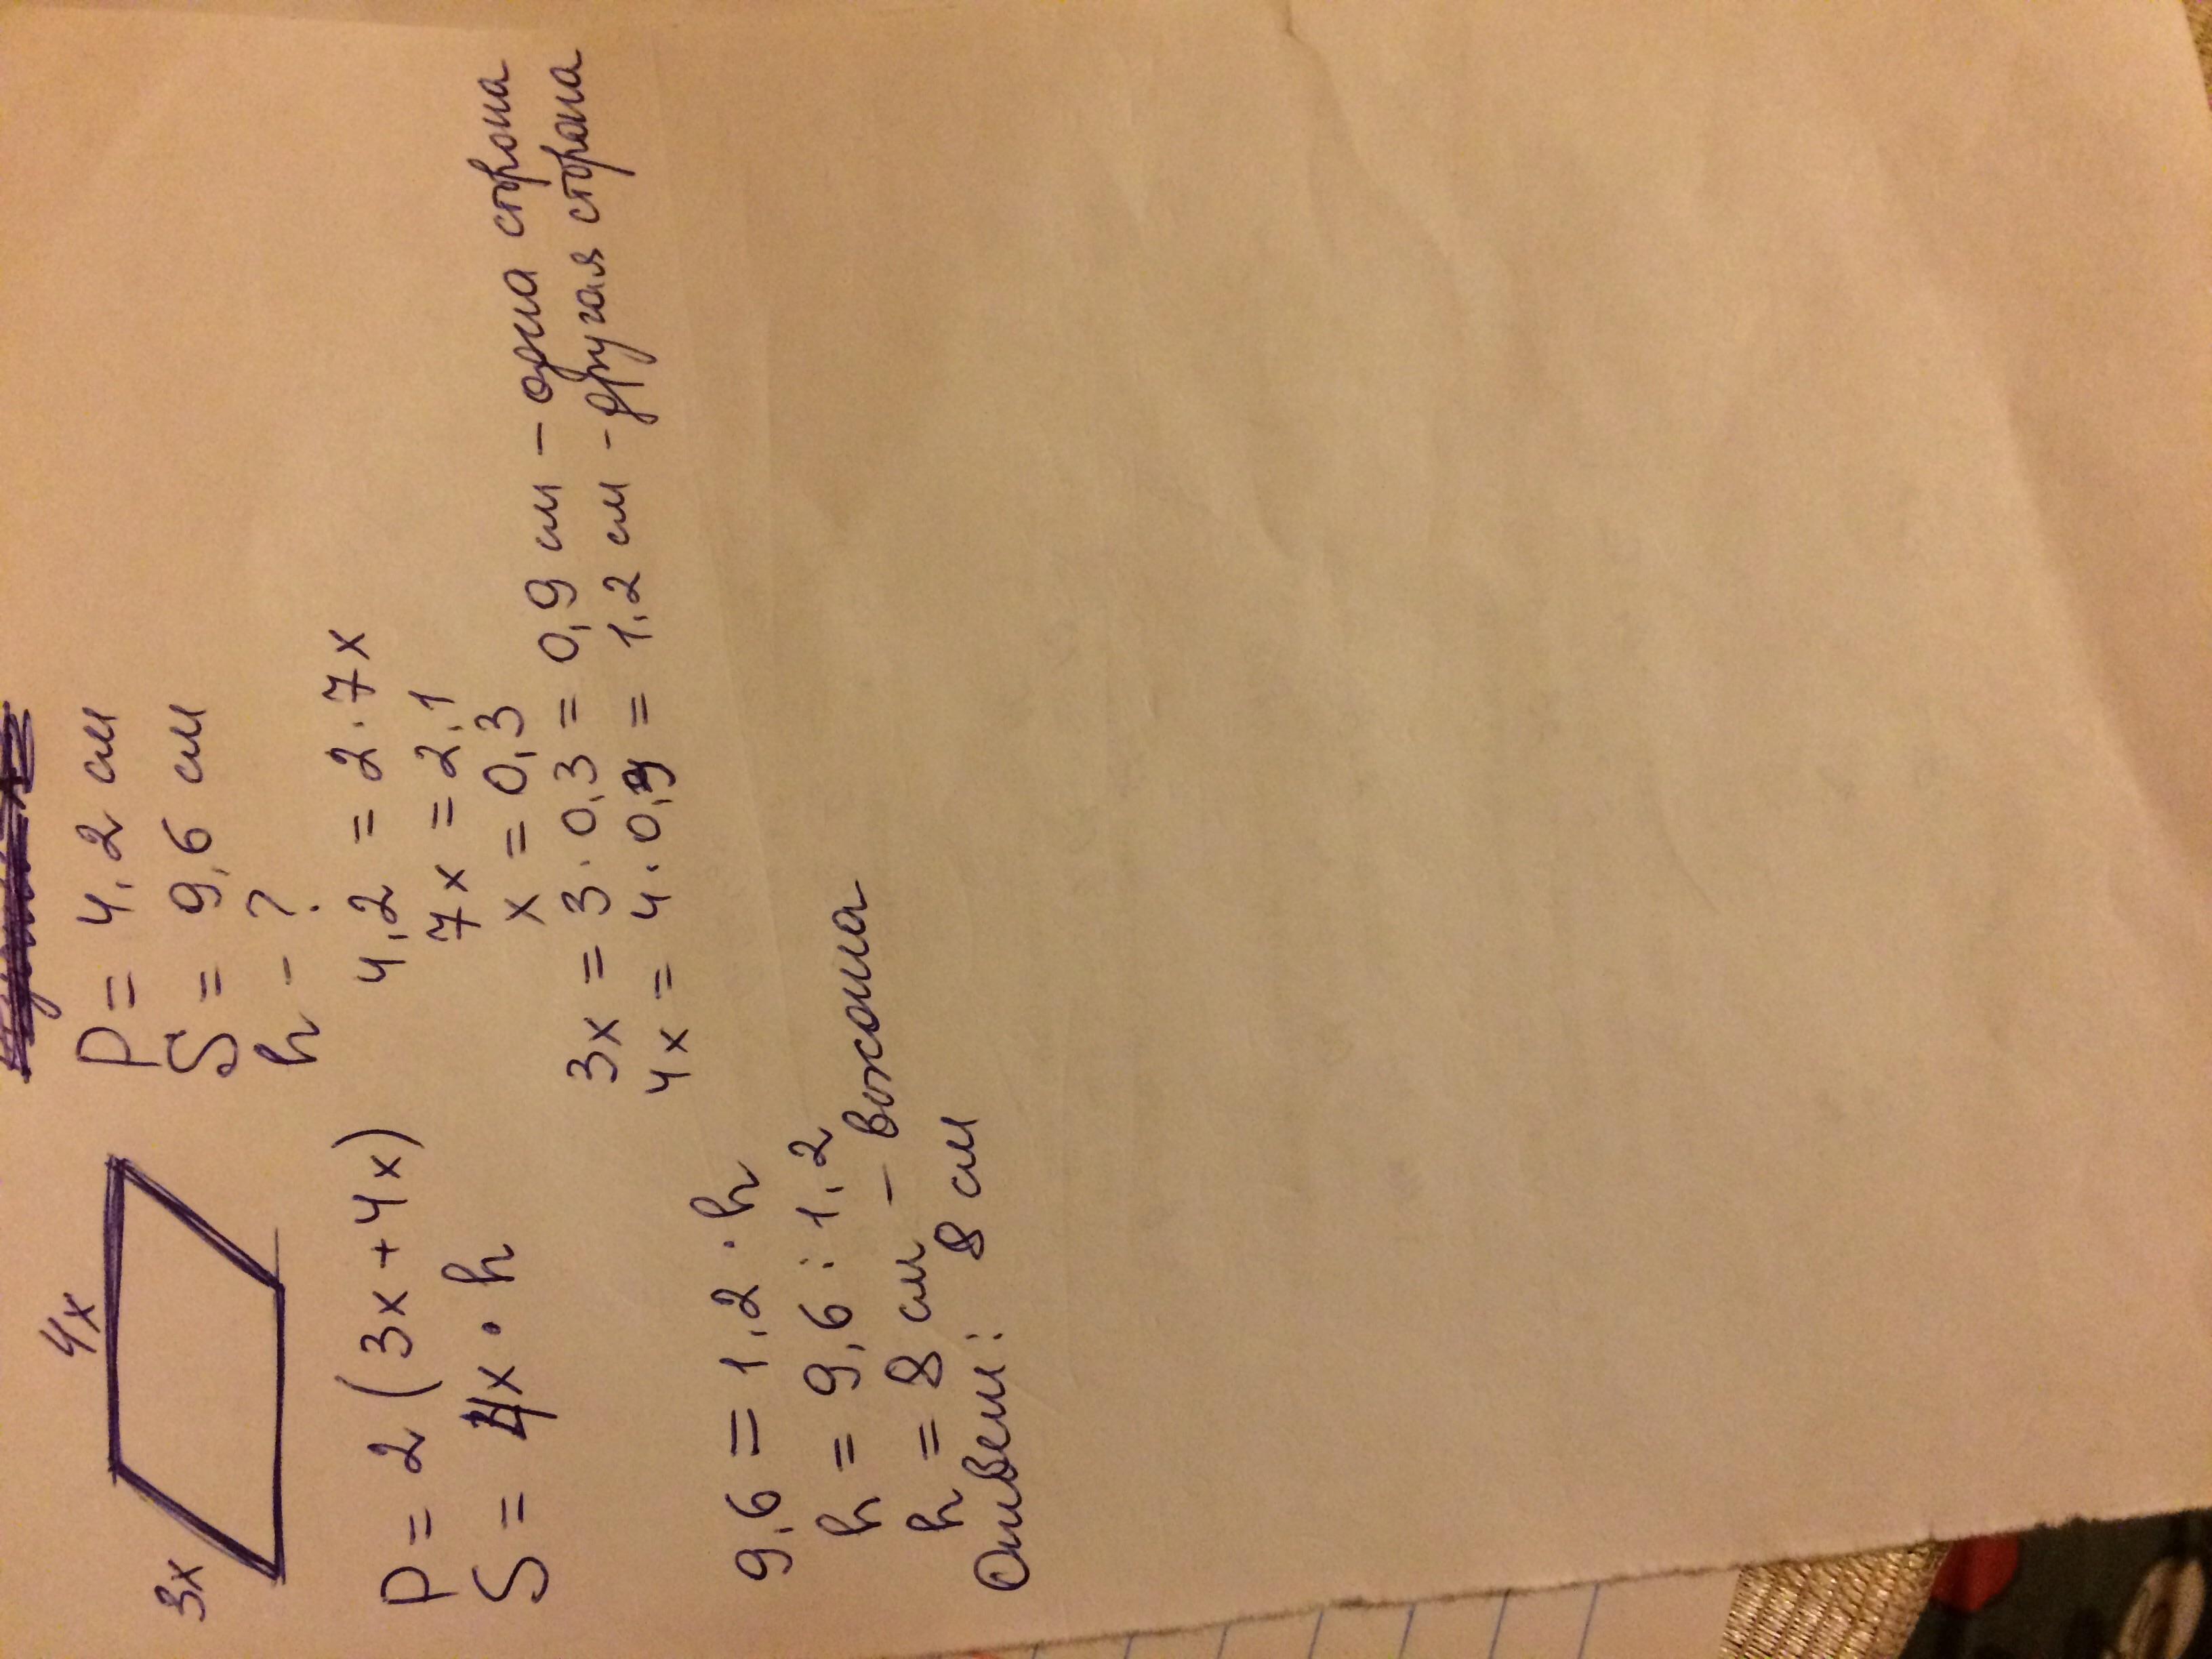 4x
3x
P = 4,2 см
S = 9,6 см
h - ?
P = 2 (3x + 4x)
S = 4x · h
4,2 = 2 · 7x
7x = 2,1
x = 0,3
3x = 3 · 0,3 = 0,9 см - одна сторона
4x = 4 · 0,3 = 1,2 см - другая сторона
9,6 = 1,2 · h
h = 9,6 : 1,2
h = 8 см -
Ответ: 8 см